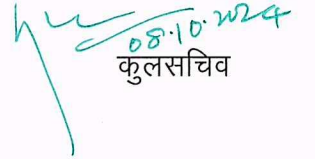 08.10.2024
कुलसचिव